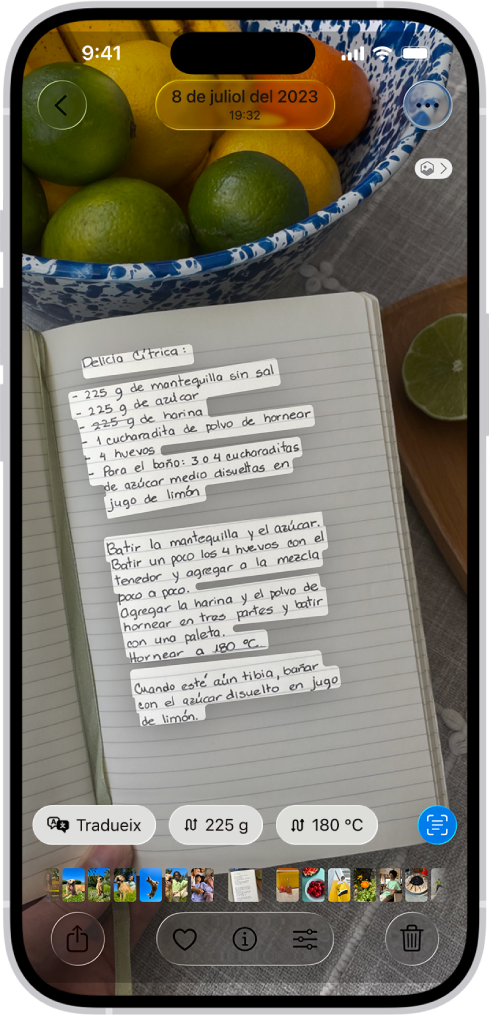 9:41
8 de juliol del 2023
19:32
Delicia Cítrica:
- 225 g de mantequilla sin sal
- 225 g de azúcar
- 225 g de harina
- 1 cucharadita de polvo de hornear
- 4 huevos
- Para el baño: 3 o 4 cucharaditas
de azúcar medio disueltas en
jugo de limón
Batir la mantequilla y el azúcar.
Batir un poco los 4 huevos con el
tenedor y agregar a la mezcla
poco a poco.
Agregar la harina y el polvo de
hornear en tres partes y batir
con una paleta.
Hornear a 180 °C.
Cuando esté aún tibia, bañar
con el azúcar disuelto en jugo
de limón.
Tradueix
225 g
180 °C